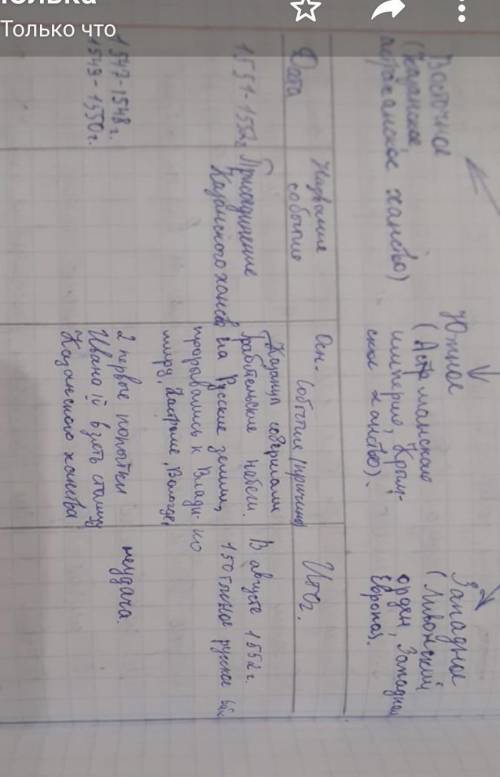 Только что
Восточное
(Казанское,
астраханское ханство)
Южное
(Османская
империя, Крым-
ское ханство).
Западное
(Ливонский
орден, Западная
Европа).
Дата
Название
событие
Осн. события (причины)
Итог.
1551-1552г
Присоединение
Казанского ханства
Казанцы совершали
грабительские набеги
на Русские земли,
прорывались к Влади-
миру, Костроме, Вологде,
В августе 1552г.
150 тысячное русское
1547-1548г.
1549-1550г.
2 первые попытки
Ивана IV взять столицу
Казанского ханства
неудача.